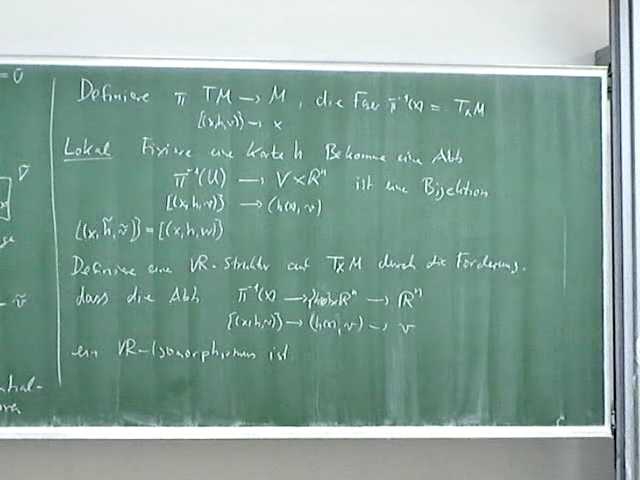 = Ũ
Ṽ
- ṽ
Definiere π TM → M, die Faser π⁻¹(x) =: TₓM
[(x,h,v)] → x
Lokal Fixiere eine Karte h Bekomme eine Abb
π⁻¹(U) → V×ℝⁿ ist eine Bijektion
[(x,h,v)] → (h(x), v)
[(x,h̃,ṽ)] = [(x,h,w)]
Definiere eine VR-Struktur auf TₓM durch die Forderung,
dass die Abb π⁻¹(x) → ℝⁿ → ℝⁿ
[(x,h,v)] → (h(x), v) → v
ein VR-Isomorphismus ist